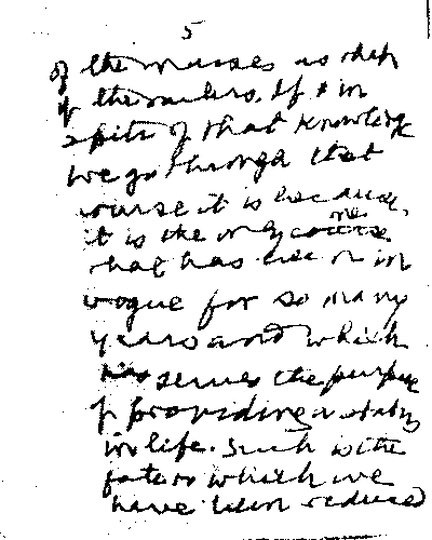 5
of the masses as that
of the rulers. If in
spite of that knowledge
we go through that
course it is because,
it is the only one
that has been in
vogue for so many
years and which
serves the purpose
of providing a status
in life. Such is the
state to which we
have been reduced